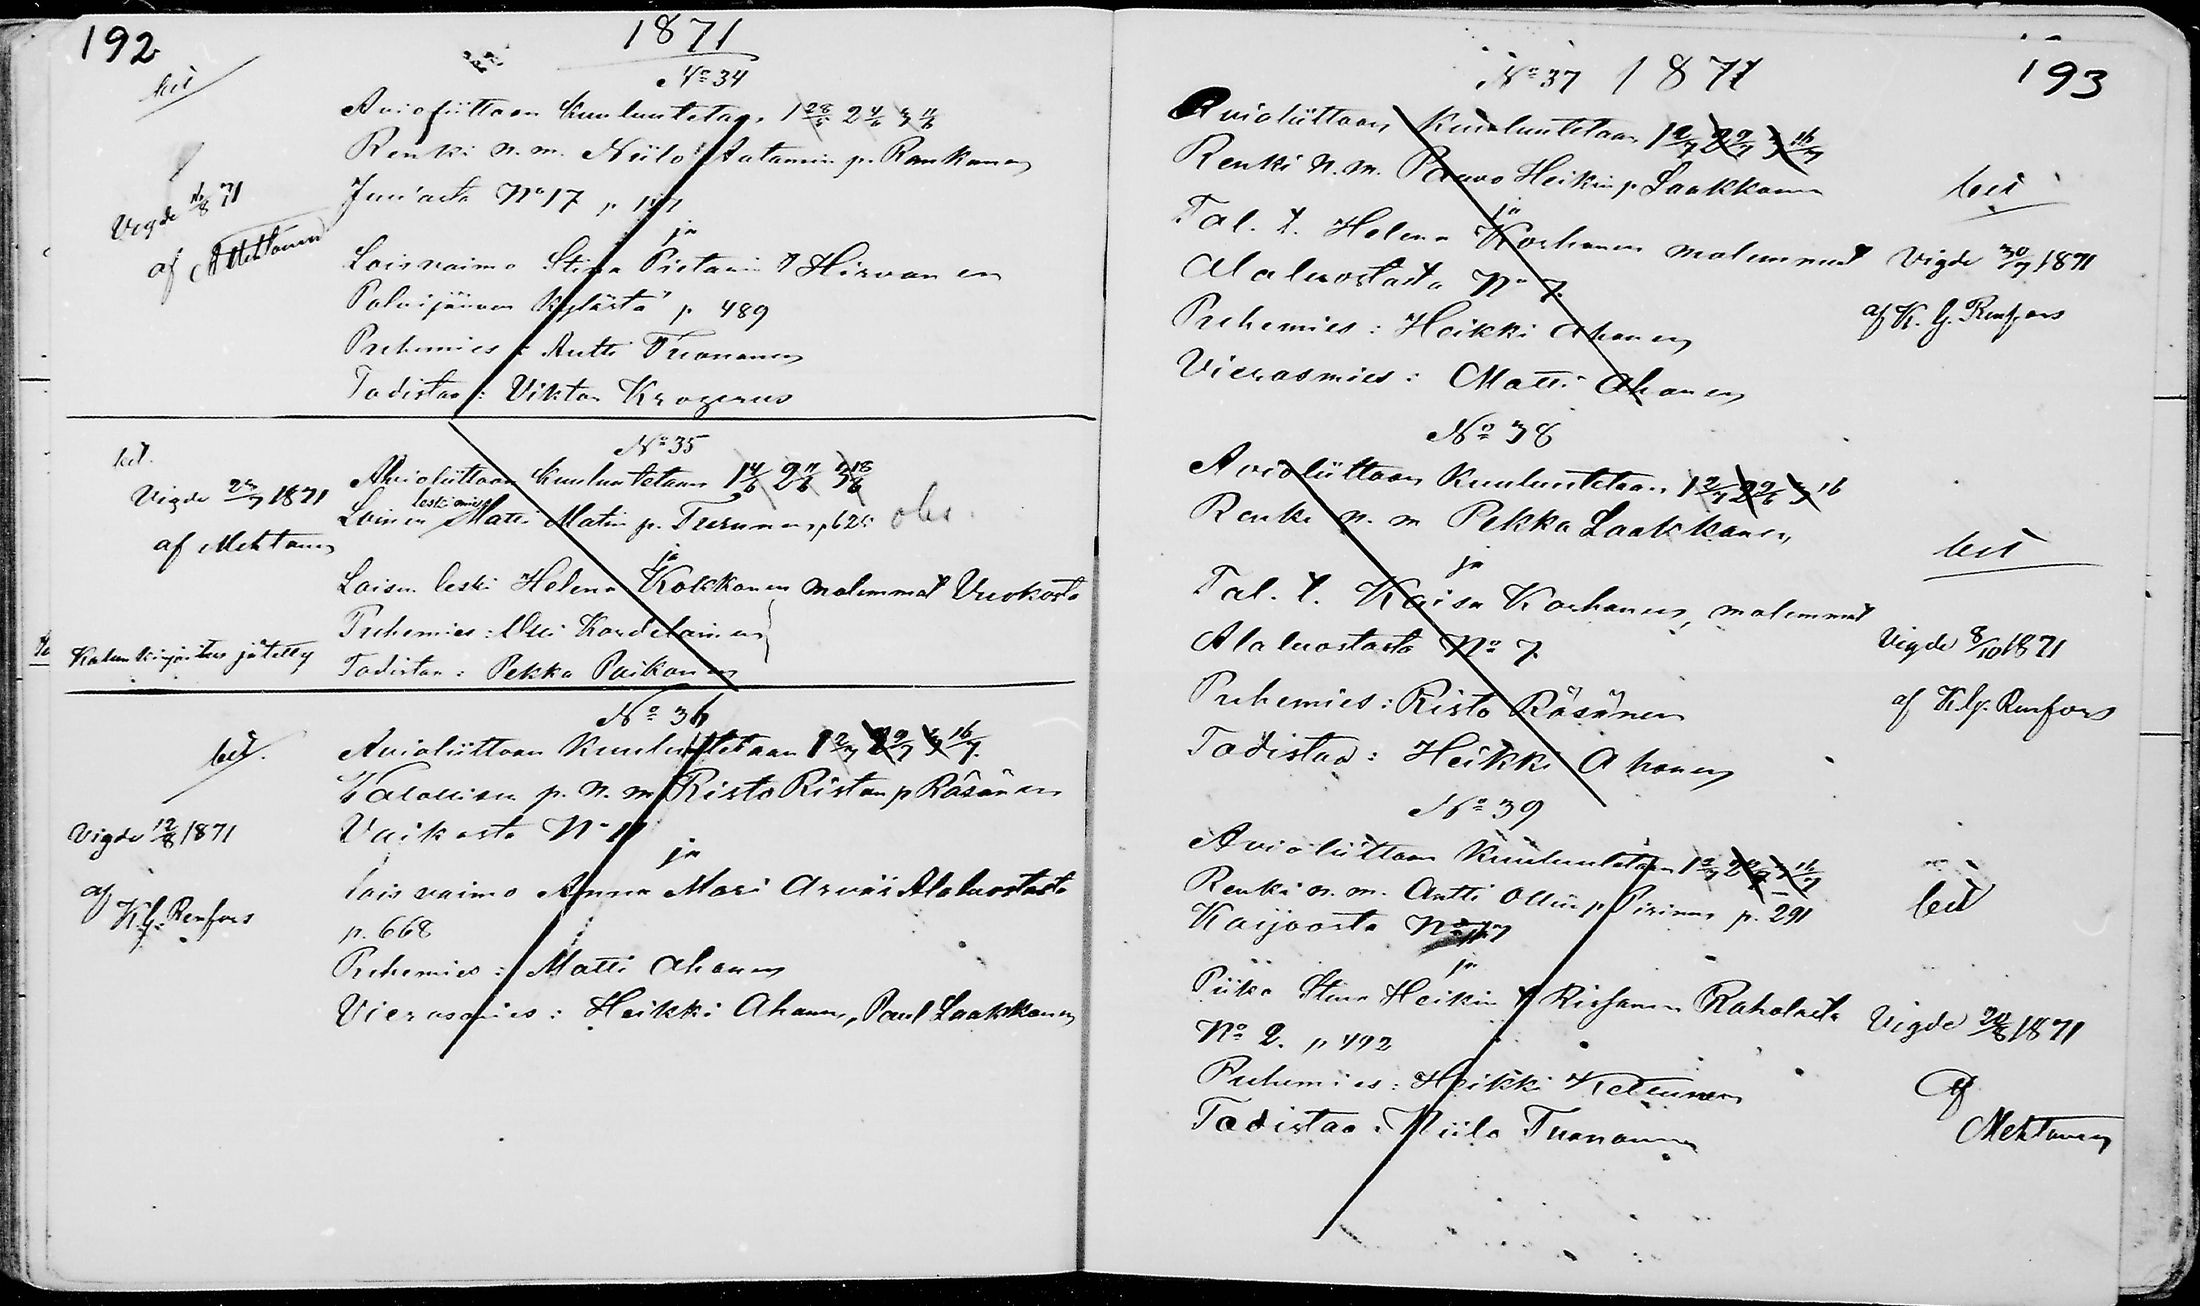 192
1871
No 34
Avioliittoon Kuulutetaan 1 28/5 2 4/6 3 11/6
Renki n. m. Niilo Aatamin p. Rankanen
Juniacta No 17 p
ja
Loisvaimo Stina Pietarin t Hirvonen
Polvijärven Kylästä p 489
Puhemies : Antti Tuononen
Todistaa : Viktor Krogerus
bet
Vigde 71
af A Mehtonen
No 35
Avioliittoon Kuulutetaan 1 4/6 2 11/6 3 18/6
leskimies
Loinen Matti Matin p. Turunen, p 625
Loisen leski Helena Kokkonen molemmat Vuokosta
Puhemies : Olli Kordelainen
Todistaa : Pekka Paikonen
bet.
Vigde 1871
af Mehtonen
jätetty
No 36
Avioliittoon Kuulutetaan 1 2/7 2 9/7 3 16/7
Talollisen p. n. m. Risto Ristan p Räsänen
Vaikosta No
ja
lois vaimo Anna Mari Arväs Alaluostasta
p. 668
Puhemies : Matti Ahonen
Vierasmies : Heikki Ahonen, Paul Laakkonen
bet.
Vigde 12/8 1871
af
K. G. Renfors
193
No 37 1871
Avioliittoon Kuulutetaan 1 2/7 2 9/7 3 16/7
Renki n. m. Paavo Heikin p. Laakkonen
ja
Tal. t. Helena Korhonen molemmat
Alaluostasta No 7.
Puhemies : Heikki Ahonen
Vierasmies : Matti Ahonen
bet
Vigde 30/7 1871
af K. G. Renfors
No 38
Avioliittoon Kuulutetaan 1 2/7 2 9/6 3 16
Renki n. m Pekka Laakkonen,
ja
Tal. t. Kaisa Korhonen, molemmat
Alaluostasta No 7.
Puhemies : Risto Räsänen
Todistaa : Heikki Ahonen
bet
Vigde 8/10 1871
af K. G. Renfors
No 39
Avioliittoon Kuulutetaan 1 2/7 2 9/7 3 16/7
Renki n. m. Antti Ollin p Piirinen p. 291
Karjoosta No
ja
Piika Stina Heikin t Rissanen Raholasta
No 2. p 492
Puhemies : Heikki Ketunen
Todistaa : Niilo Tuononen
bet
Vigde 20/8 1871
af
Mehtonen